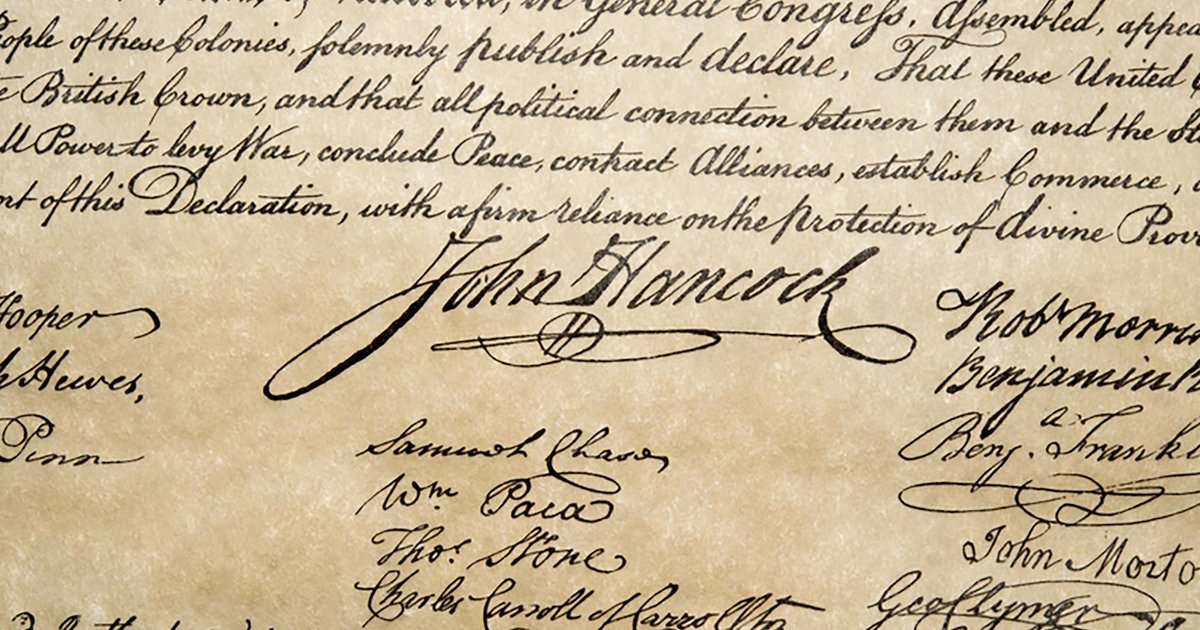 in General Congress, Assembled, appea
eople of these Colonies, solemnly publish and declare, That these United
e British Crown, and that all political connection between them and the
ll Power to levy War, conclude Peace, contract Alliances, establish Commerce,
of this Declaration, with a firm reliance on the protection of divine Prov
John Hancock
Hooper
Hewes,
Penn
Samuel Chase
Wm Paca
Thos. Stone
Charles Carroll of Carrollton
Robt Morri
Benjamin R
Benja. Frankl
John Morto
Geo Clymer